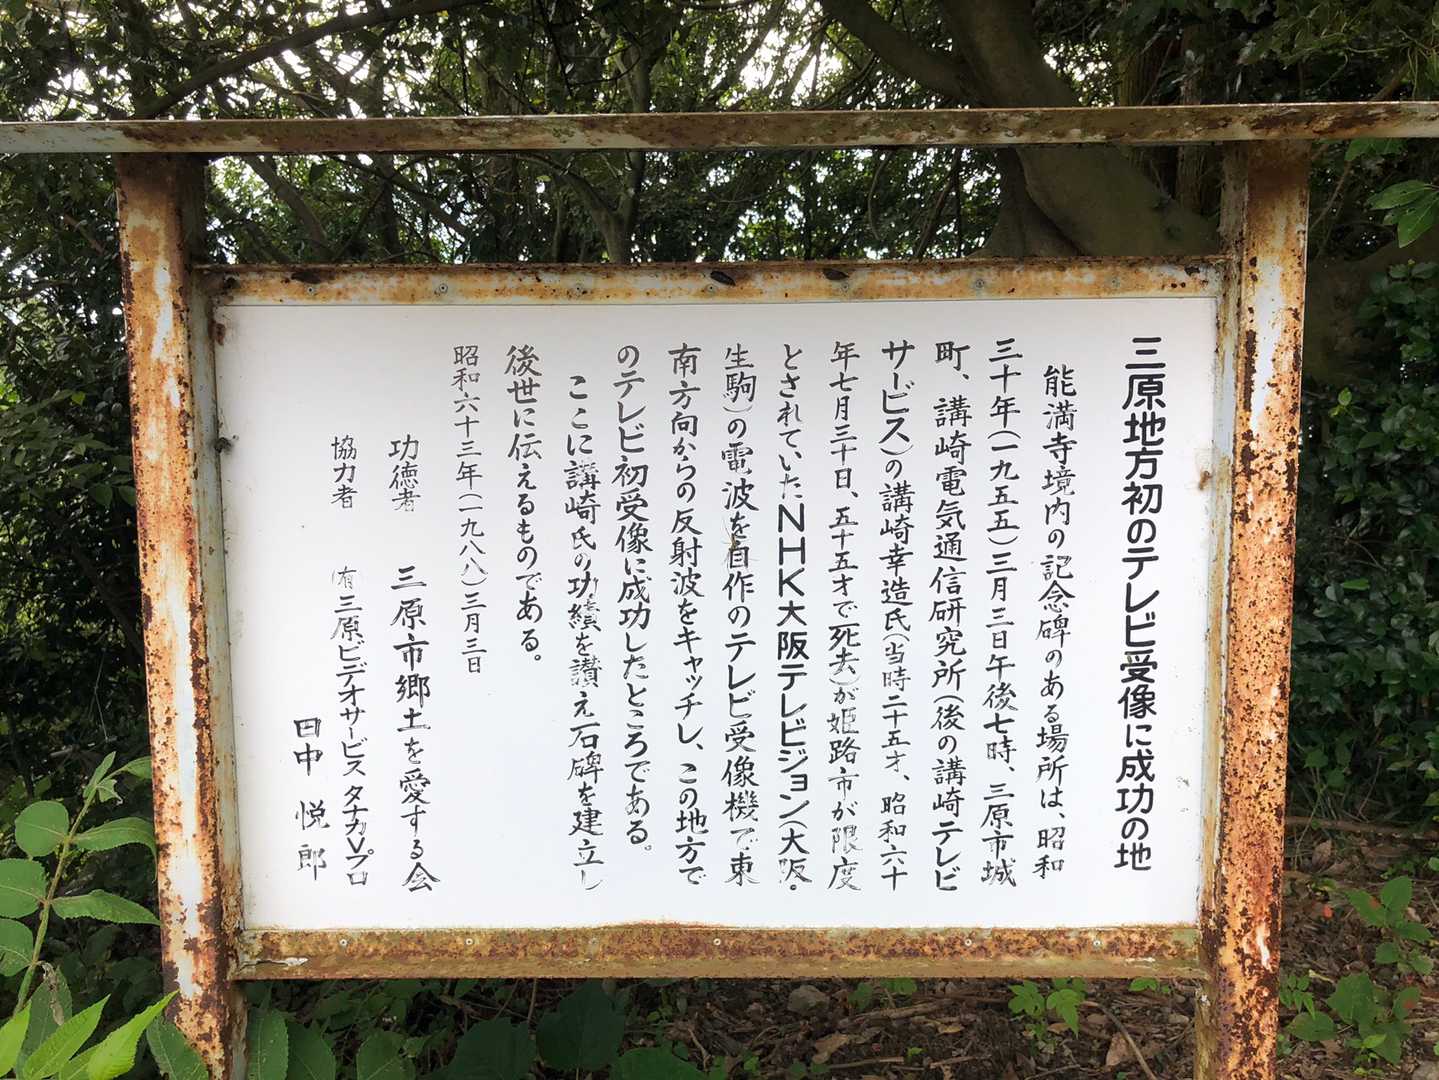 三原地方初のテレビ受像に成功の地
能満寺境内の記念碑のある場所は、昭和
三十年(一九五五)三月三日午後七時、三原市城
町、講崎電気通信研究所(後の講崎テレビ
サービス)の講崎幸造氏(当時二十五才、昭和六十
年七月三十日、五十五才で死去)が姫路市が限度
とされていたNHK大阪テレビジョン(大阪・
生駒)の電波を自作のテレビ受像機で東
南方向からの反射波をキャッチし、この地方で
のテレビ初受像に成功したところである。
ここに講崎氏の功績を讃え石碑を建立し
後世に伝えるものである。
昭和六十三年(一九八八)三月三日
功徳者 三原市郷土を愛する会
協力者 (有)三原ビデオサービスタナカVプロ
田中 悦郎